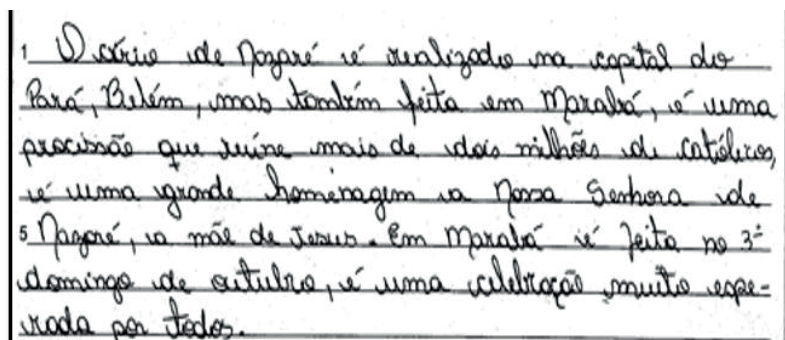 1 O círio de Nazaré é realizado na capital do
Pará, Belém, mas também feita em Marabá, é uma
procissão que reúne mais de dois milhões de católicos,
é uma grande homenagem a Nossa Senhora de
5 Nazaré, a mãe de Jesus. Em Marabá é feita no 3º
domingo de outubro, é uma celebração muito espe-
rada por todos.